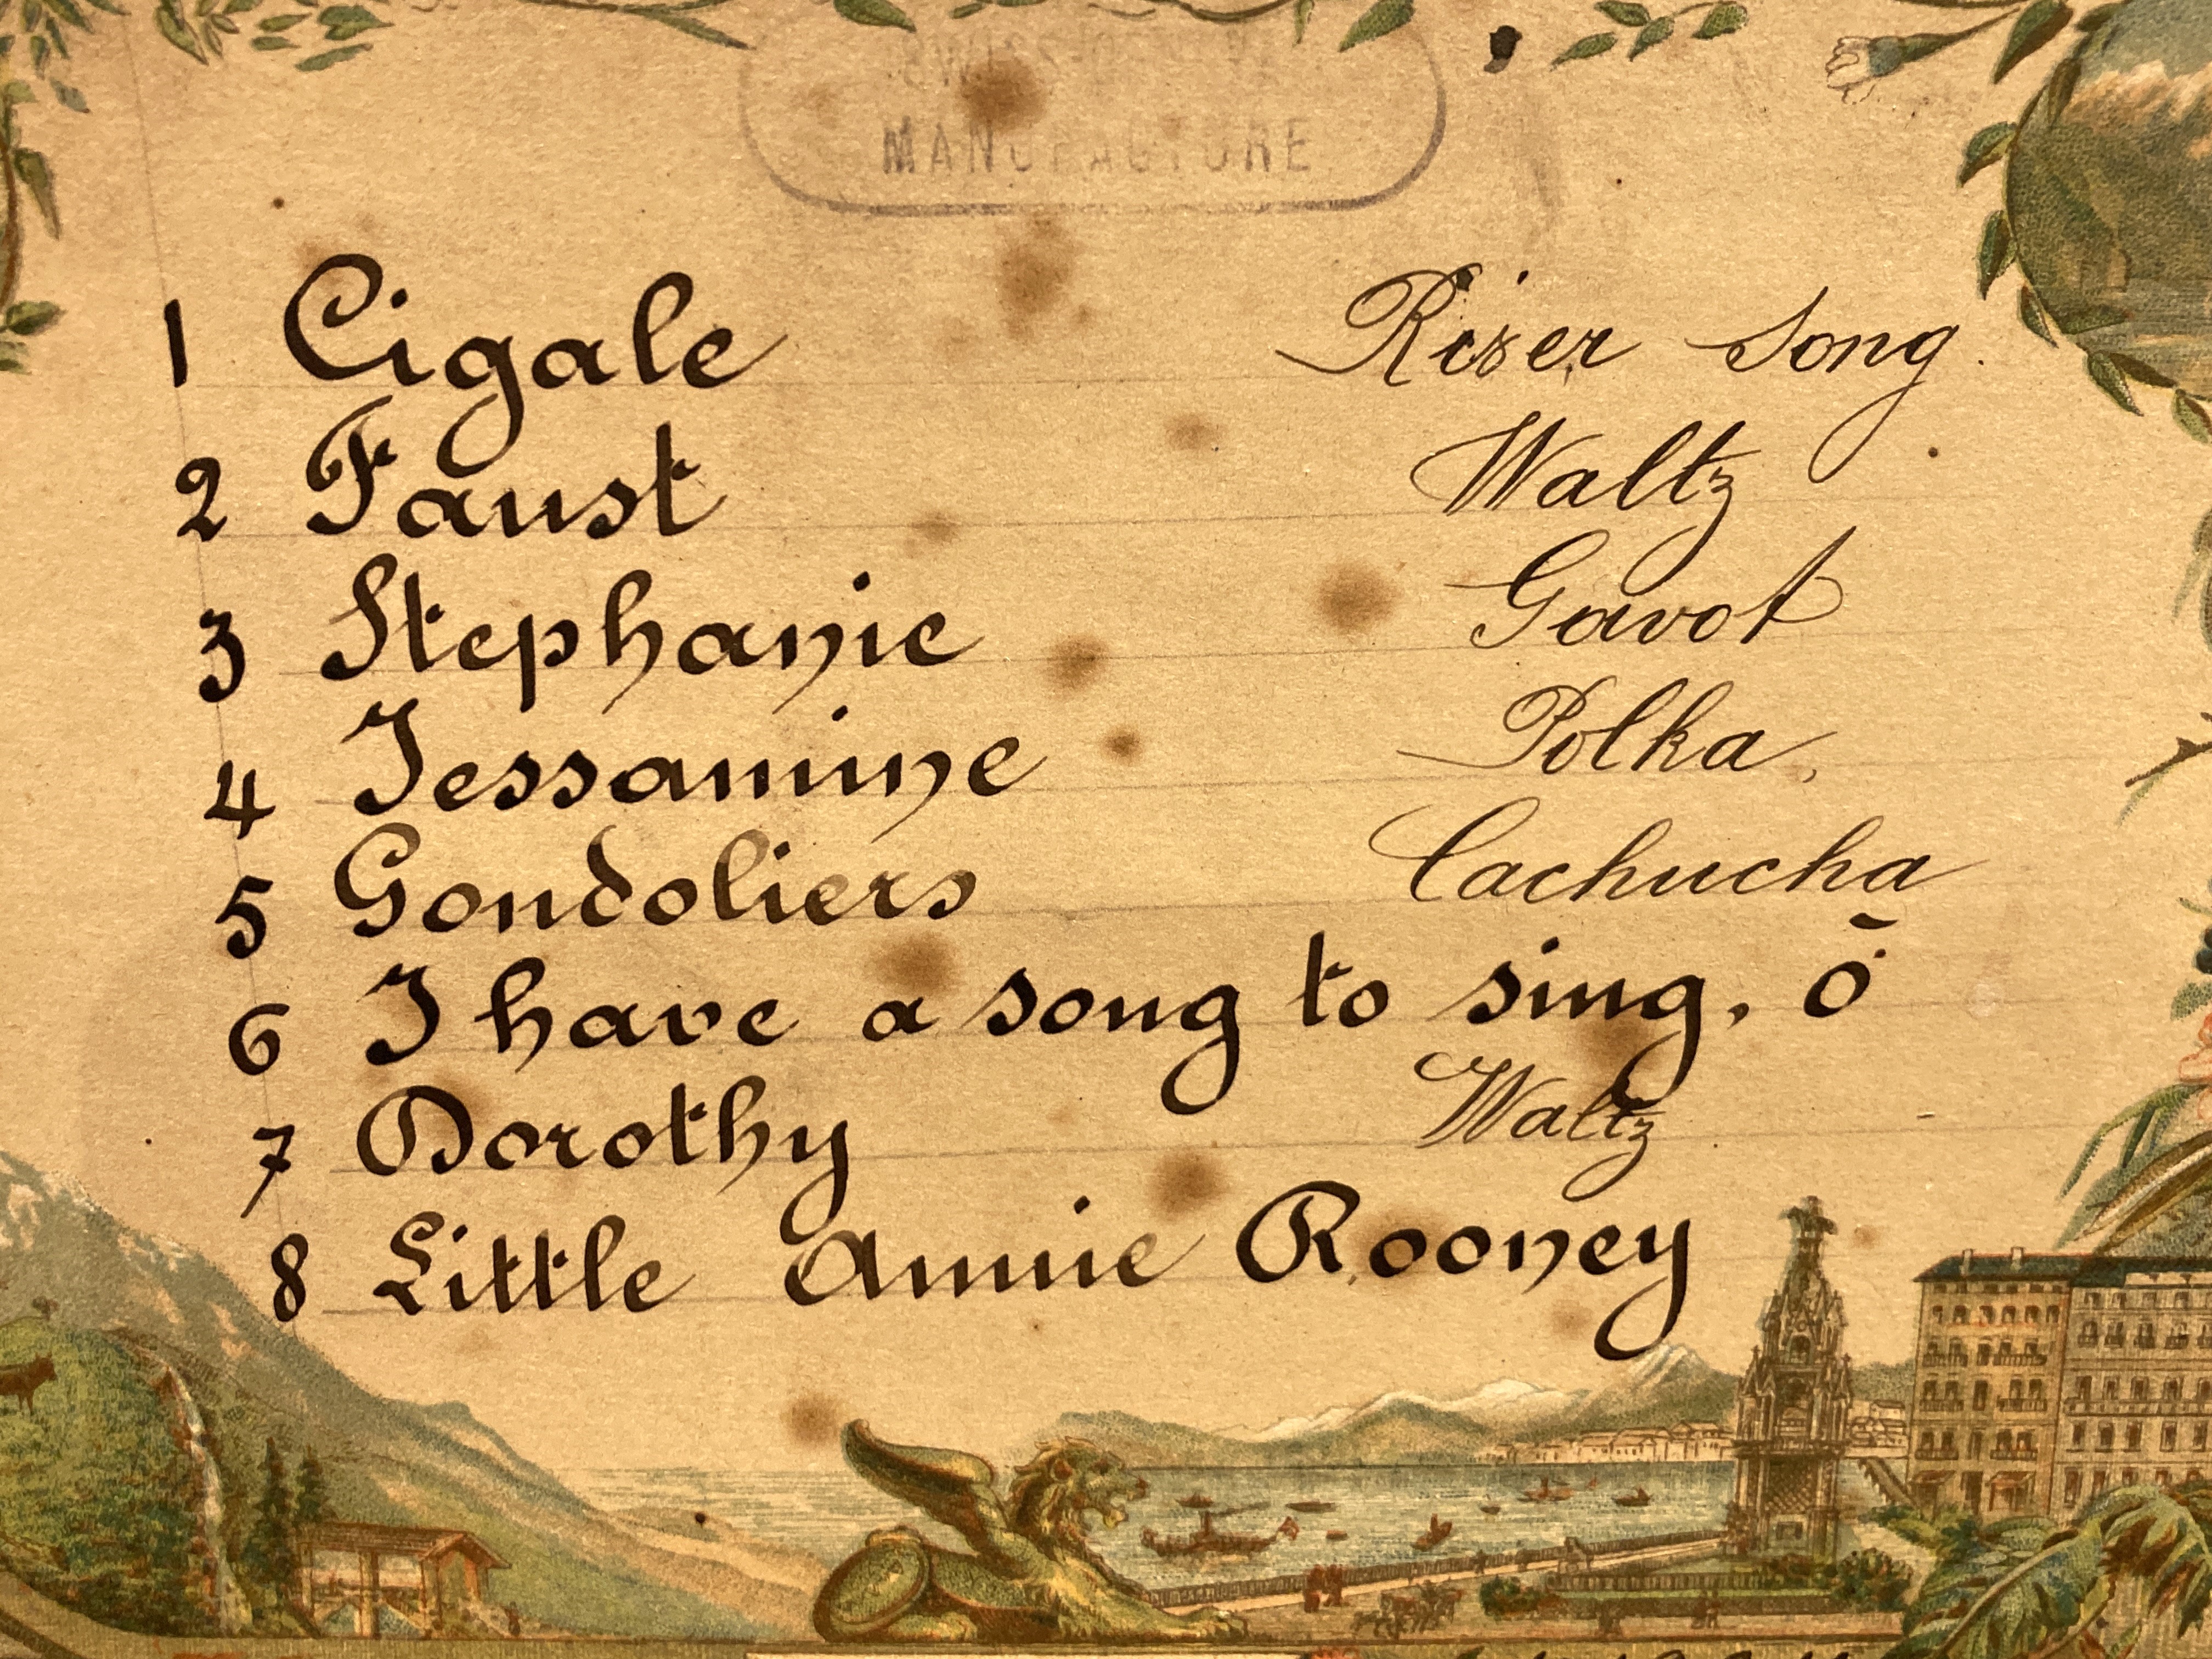 MANUFACTURE
1 Cigale Rixer song.
2 Faust Waltz
3 Stephanie Gavot
4 Jessamine Polka
5 Gondoliers Cachucha
6 I have a song to sing, O
7 Dorothy Waltz
8 Little Annie Rooney